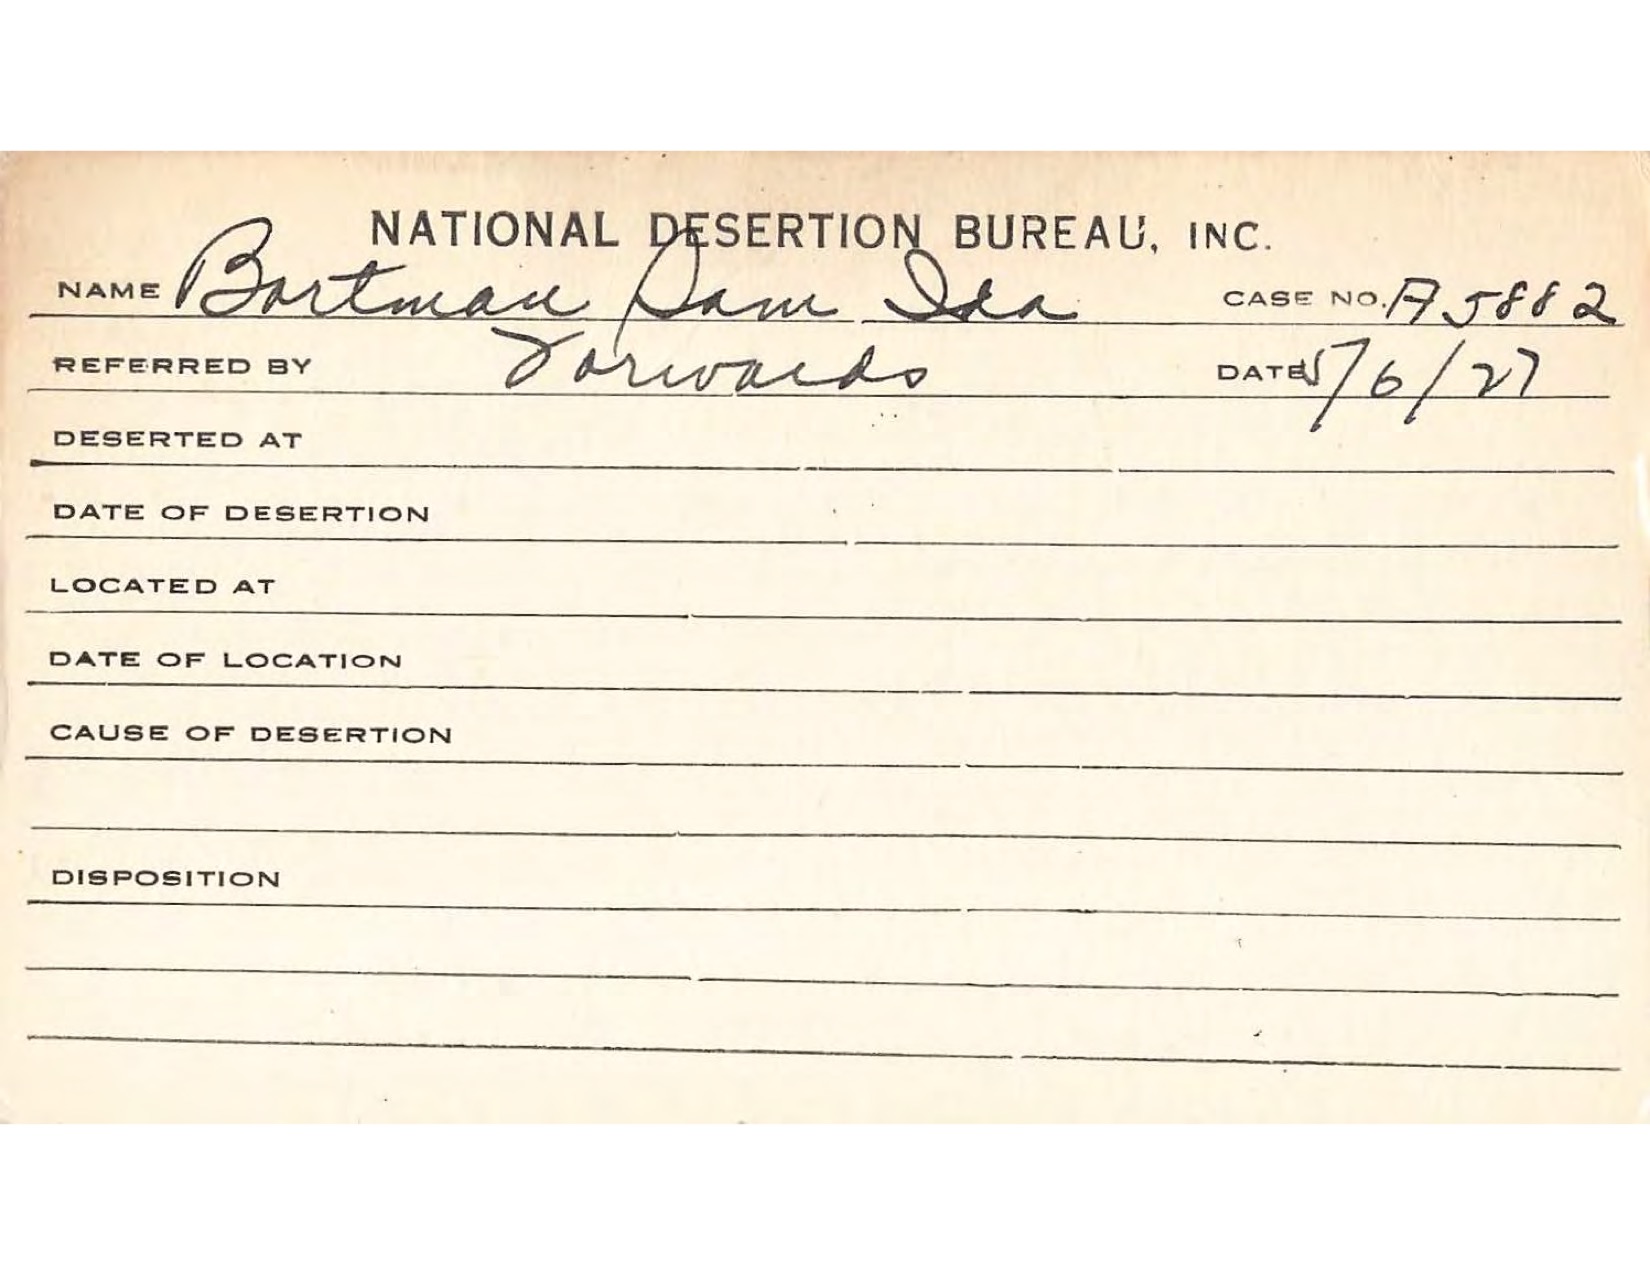 NATIONAL DESERTION BUREAU, INC.
NAME Bortman Sam Ida CASE NO. A5882
REFERRED BY Forwards DATE 5/6/27
DESERTED AT
DATE OF DESERTION
LOCATED AT
DATE OF LOCATION
CAUSE OF DESERTION
DISPOSITION